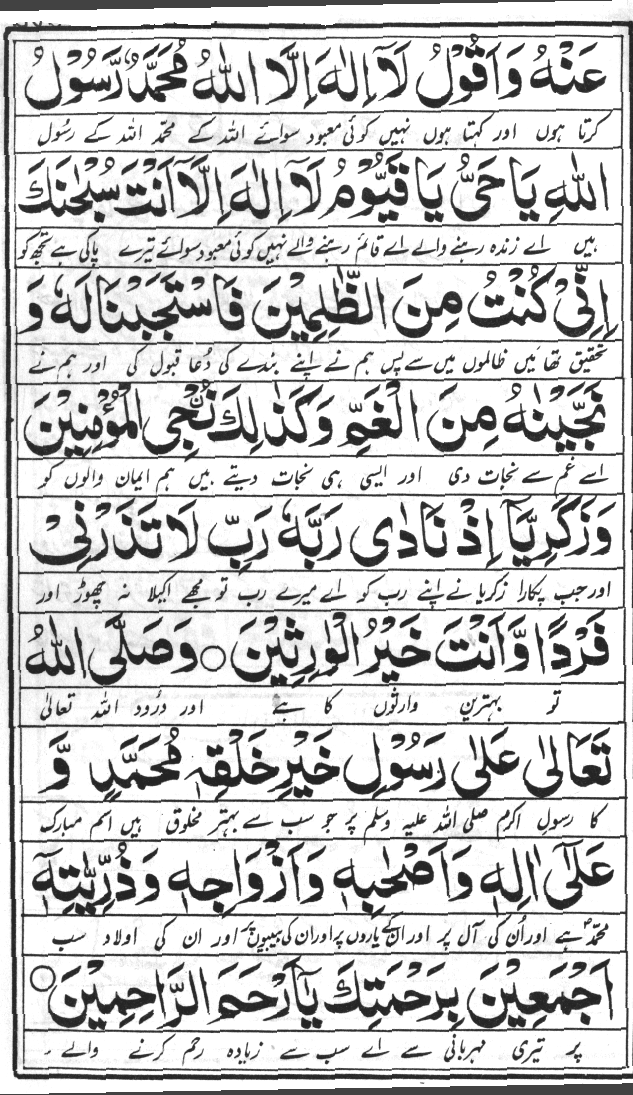 عَنْهُ وَاَقُوْلُ لَآ اِلٰهَ اِلَّا اللّٰهُ مُحَمَّدٌ رَّسُوْلُ
کرتا ہوں اور کہتا ہوں نہیں کوئی معبود سوائے اللہ کے محمد اللہ کے رسُول
اللّٰهِ يَا حَىُّ يَا قَيُّوْمُ لَآ اِلٰهَ اِلَّآ اَنْتَ سُبْحٰنَكَ
ہیں اے زندہ رہنے والے اے قائم رہنے والے نہیں کوئی معبود سوائے تیرے پاکی ہے تجھ کو
اِنِّىْ كُنْتُ مِنَ الظّٰلِمِيْنَ فَاسْتَجَبْنَا لَهٗ وَ
تحقیق تھا میں ظالموں میں سے پس ہم نے اپنے بندے کی دُعا قبول کی اور ہم نے
نَجَّيْنٰهُ مِنَ الْغَمِّ وَكَذٰلِكَ نُنْجِى الْمُؤْمِنِيْنَ
اسے غم سے نجات دی اور ایسی ہی نجات دیتے ہیں ہم ایمان والوں کو
وَزَكَرِيَّآ اِذْ نَادٰى رَبَّهٗ رَبِّ لَا تَذَرْنِىْ
اور جب پکارا زکریا نے اپنے رب کو اے میرے رب تو مجھے اکیلا نہ چھوڑ اور
فَرْدًا وَّاَنْتَ خَيْرُ الْوٰرِثِيْنَ ○ وَصَلَّى اللّٰهُ
تو بہترین وارثوں کا ہے اور درُود اللہ تعالیٰ
تَعَالٰى عَلٰى رَسُوْلِ خَيْرِ خَلْقِهٖ مُحَمَّدٍ وَّ
کا رسولِ اکرم صلی اللہ علیہ وسلم پر جو سب سے بہتر مخلوق ہیں اسم مبارک
عَلٰٓى اٰلِهٖ وَاَصْحٰبِهٖ وَاَزْوَاجِهٖ وَذُرِّيّٰتِهٖٓ
محمدؐ ہے اور اُن کی آل پر اور ان کے یاروں پر اور ان کی بیبیوں پر اور ان کی اولاد سب
اَجْمَعِيْنَ بِرَحْمَتِكَ يَآ اَرْحَمَ الرَّاحِمِيْنَ ○
پر تیری مہربانی سے اے سب سے زیادہ رحم کرنے والے ۔